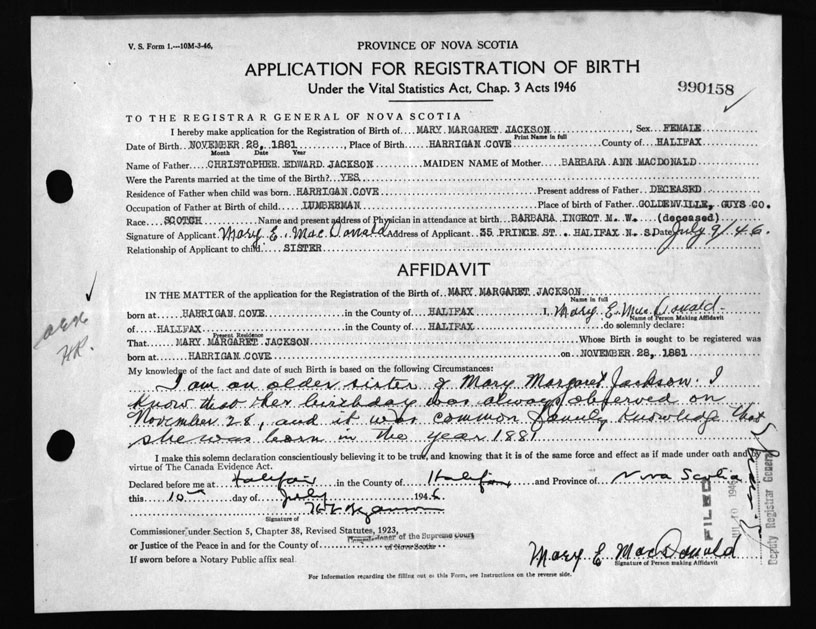 V. S. Form 1.—10M-3-46,
PROVINCE OF NOVA SCOTIA
APPLICATION FOR REGISTRATION OF BIRTH
Under the Vital Statistics Act, Chap. 3 Acts 1946
990158
TO THE REGISTRAR GENERAL OF NOVA SCOTIA
I hereby make application for the Registration of Birth of MARY MARGARET JACKSON, Sex FEMALE
Print Name in full
Date of Birth NOVEMBER 28, 1881, Place of Birth HARRIGAN COVE County of HALIFAX
Month Date Year
Name of Father CHRISTOPHER EDWARD JACKSON MAIDEN NAME of Mother BARBARA ANN MACDONALD
Were the Parents married at the time of the Birth? YES
Residence of Father when child was born HARRIGAN COVE Present address of Father DECEASED
Occupation of Father at Birth of child LUMBERMAN Place of birth of Father GOLDENVILLE, GUYS CO.
Race SCOTCH Name and present address of Physician in attendance at birth BARBARA INGEOT M. W. (deceased)
Signature of Applicant Mary E. MacDonald Address of Applicant 35 PRINCE ST. HALIFAX N. S. Date July 9/46.
Relationship of Applicant to child SISTER
AFFIDAVIT
IN THE MATTER of the application for the Registration of the Birth of MARY MARGARET JACKSON
Name in full
born at HARRIGAN COVE in the County of HALIFAX I, Mary E. MacDonald
Name of Person Making Affidavit
of HALIFAX in the County of HALIFAX do solemnly declare:
Present Residence
That MARY MARGARET JACKSON Whose Birth is sought to be registered was
born at HARRIGAN COVE on NOVEMBER 28, 1881
My knowledge of the fact and date of such Birth is based on the following Circumstances:
I am an older sister of Mary Margaret Jackson. I
know that her birthday was always observed on
November 28, and it was common family knowledge that
she was born in the year 1881
I make this solemn declaration conscientiously believing it to be true, and knowing that it is of the same force and effect as if made under oath and by
virtue of The Canada Evidence Act.
Declared before me at Halifax in the County of Halifax and Province of Nova Scotia
this 10th day of July 1946
Signature of
Commissioner under Section 5, Chapter 38, Revised Statutes, 1923,
or Justice of the Peace in and for the County of
of the Supreme Court
of Nova Scotia
If sworn before a Notary Public affix seal.
Mary E. MacDonald
Signature of Person making Affidavit
For Information regarding the filling out of this Form, see Instructions on the reverse side.
FILED
JUL 10 1946
Deputy Registrar General